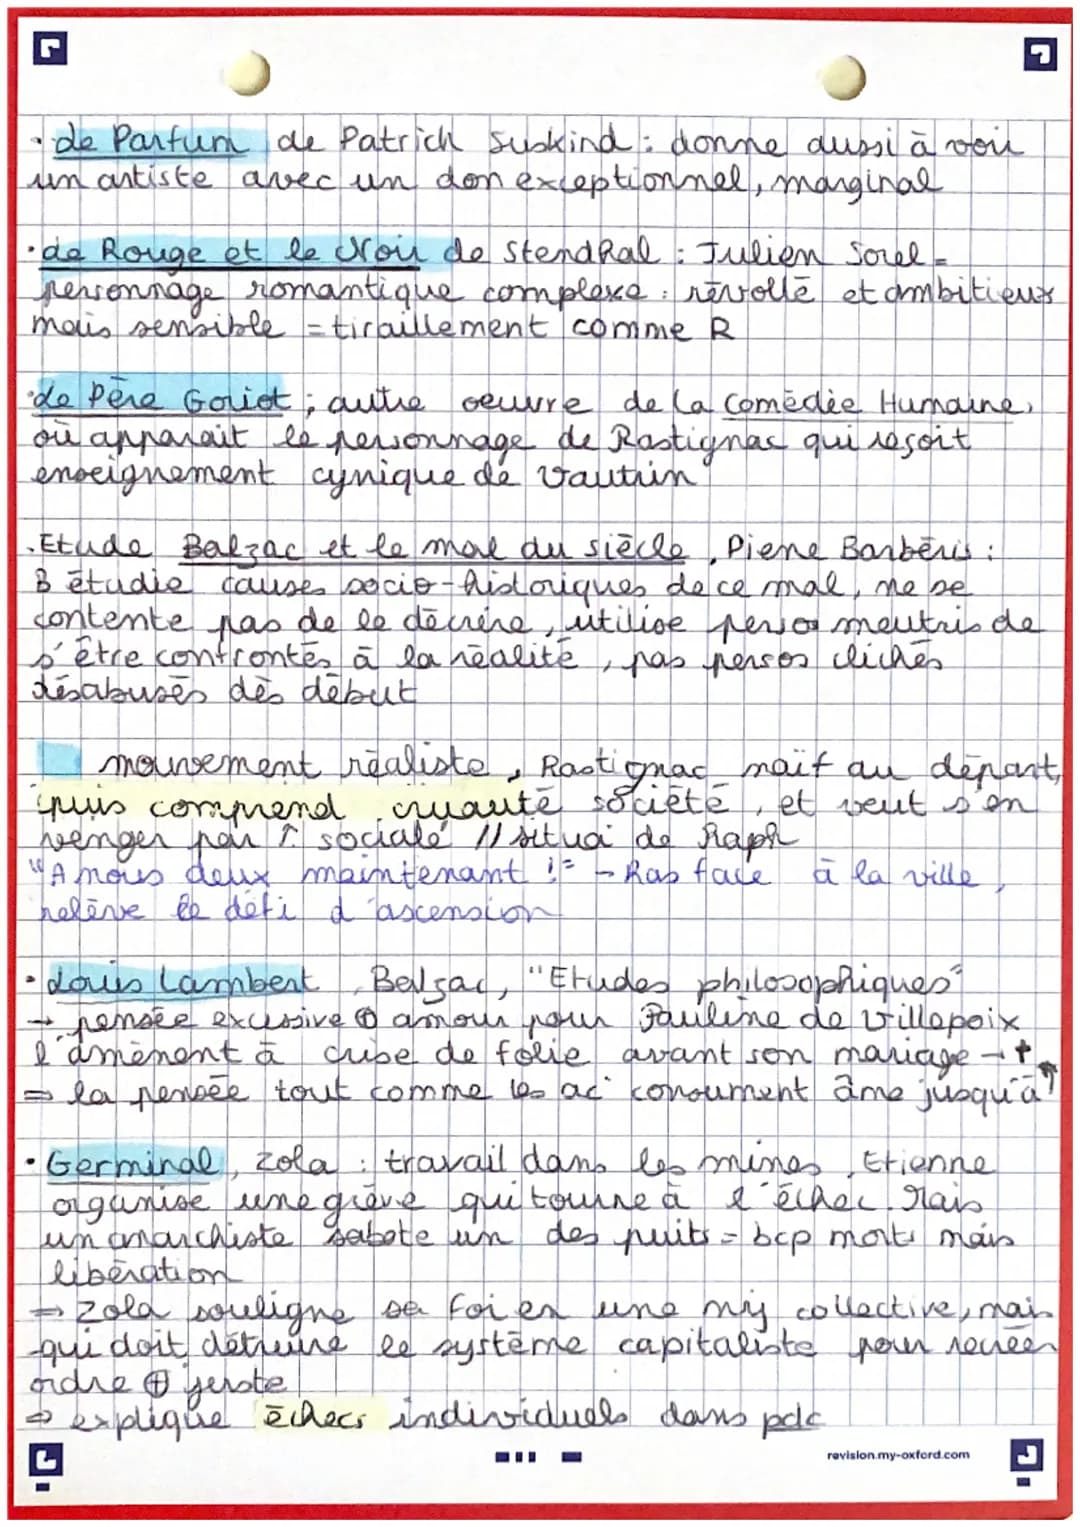 · Le Parfum de Patrich Suskind : donne aussi à voir
un artiste avec un don exceptionnel, marginal
· Le Rouge et le Noir de Stendhal : Julien Sorel =
personnage romantique complexe : révolté et ambitieux
mais sensible = tiraillement comme R
· Le Père Goriot ; autre oeuvre de la Comédie Humaine,
où apparait le personnage de Rastignac qui reçoit
enseignement cynique de Vautrin
. Etude Balzac et le mal du siècle, Pierre Barbéris :
B étudie causes socio-historiques de ce mal, ne se
contente pas de le décrire, utilise persos meutris de
s'être confrontés à la réalité, pas persos clichés
désabusés dès début
mouvement réaliste, Rastignac naïf au départ,
puis comprend cruauté société, et veut s'en
venger par ↑ sociale // situa° de Raph
"A nous deux maintenant !" - Ras face à la ville,
relève le défi d'ascension
· Louis Lambert, Balzac, "Etudes philosophiques"
→ pensée excessive ⊕ amour pour Pauline de Villepoix
l'amènent à crise de folie avant son mariage → †
⇒ la pensée tout comme les ac° consument âme jusqu'à ↑
· Germinal, Zola : travail dans les mines, Etienne
organise une grève qui tourne à l'échec. Mais
un anarchiste sabote un des puits = bcp morts mais
libération
⇒ Zola souligne sa foi en une collective, mais
qui doit détruire le système capitaliste pour recréer
ordre ⊕ juste
⇒ explique échecs individuels dans pdc
revision.my-oxford.com